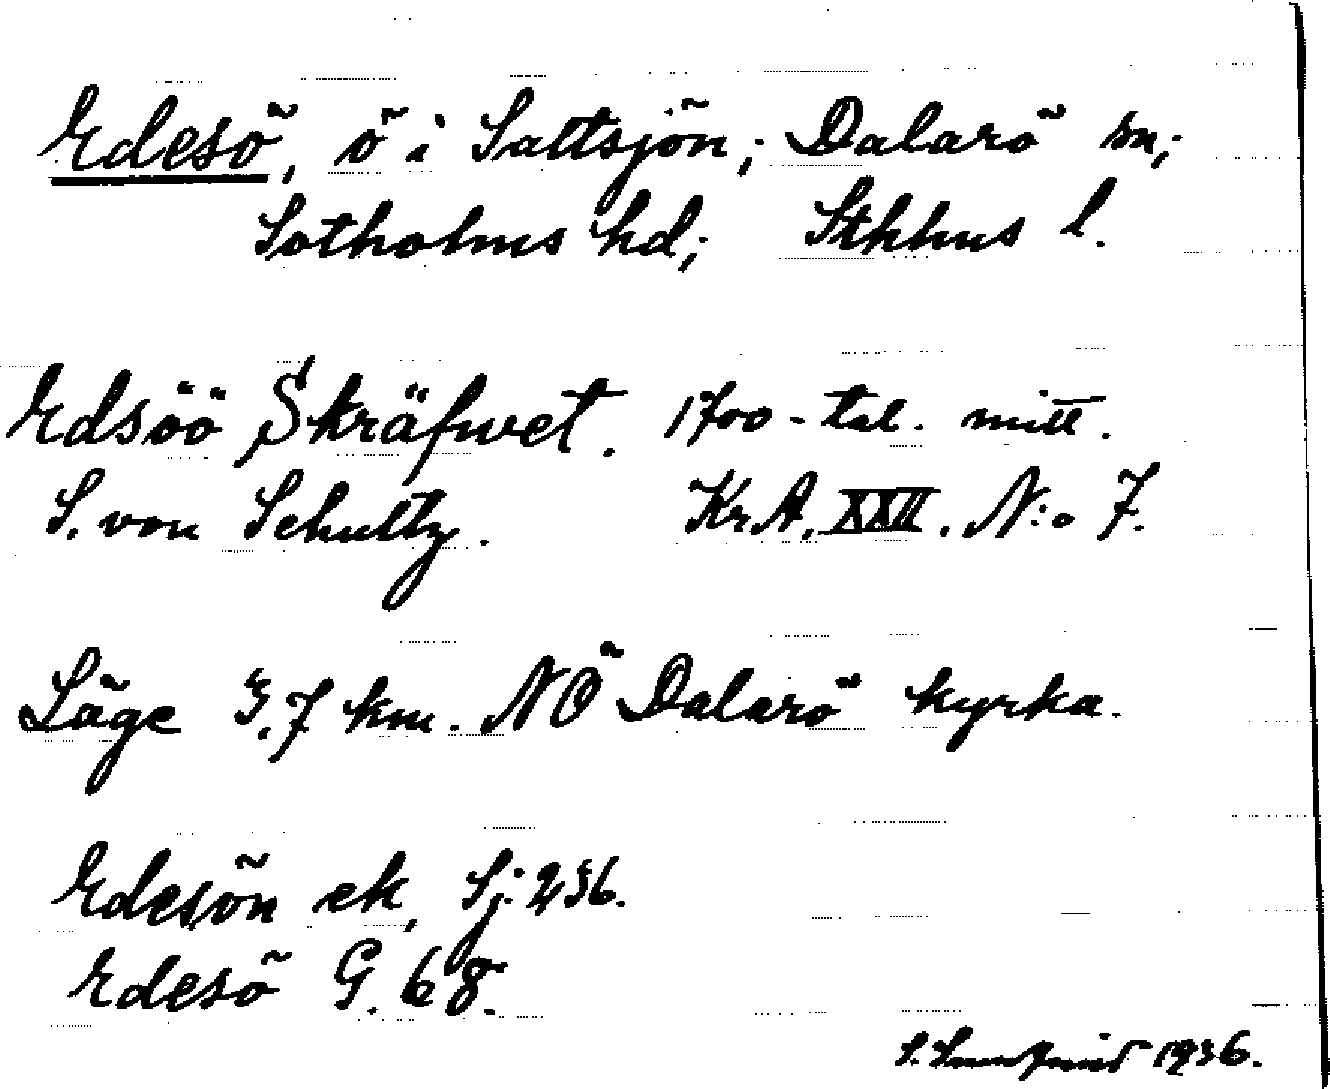 Edesö, ö i Saltsjön; Dalarö sn;
Sotholms hd; Sthlms l.
Edsöö Skräfwet. 1700-tal. mitt.
S. von Schultz. Kr.A. XXII. N:o 7.
Läge 5.7 km. NÖ Dalarö kyrka.
Edesön ek, Sj. 236.
Edesö G. 68.
S. 1936.